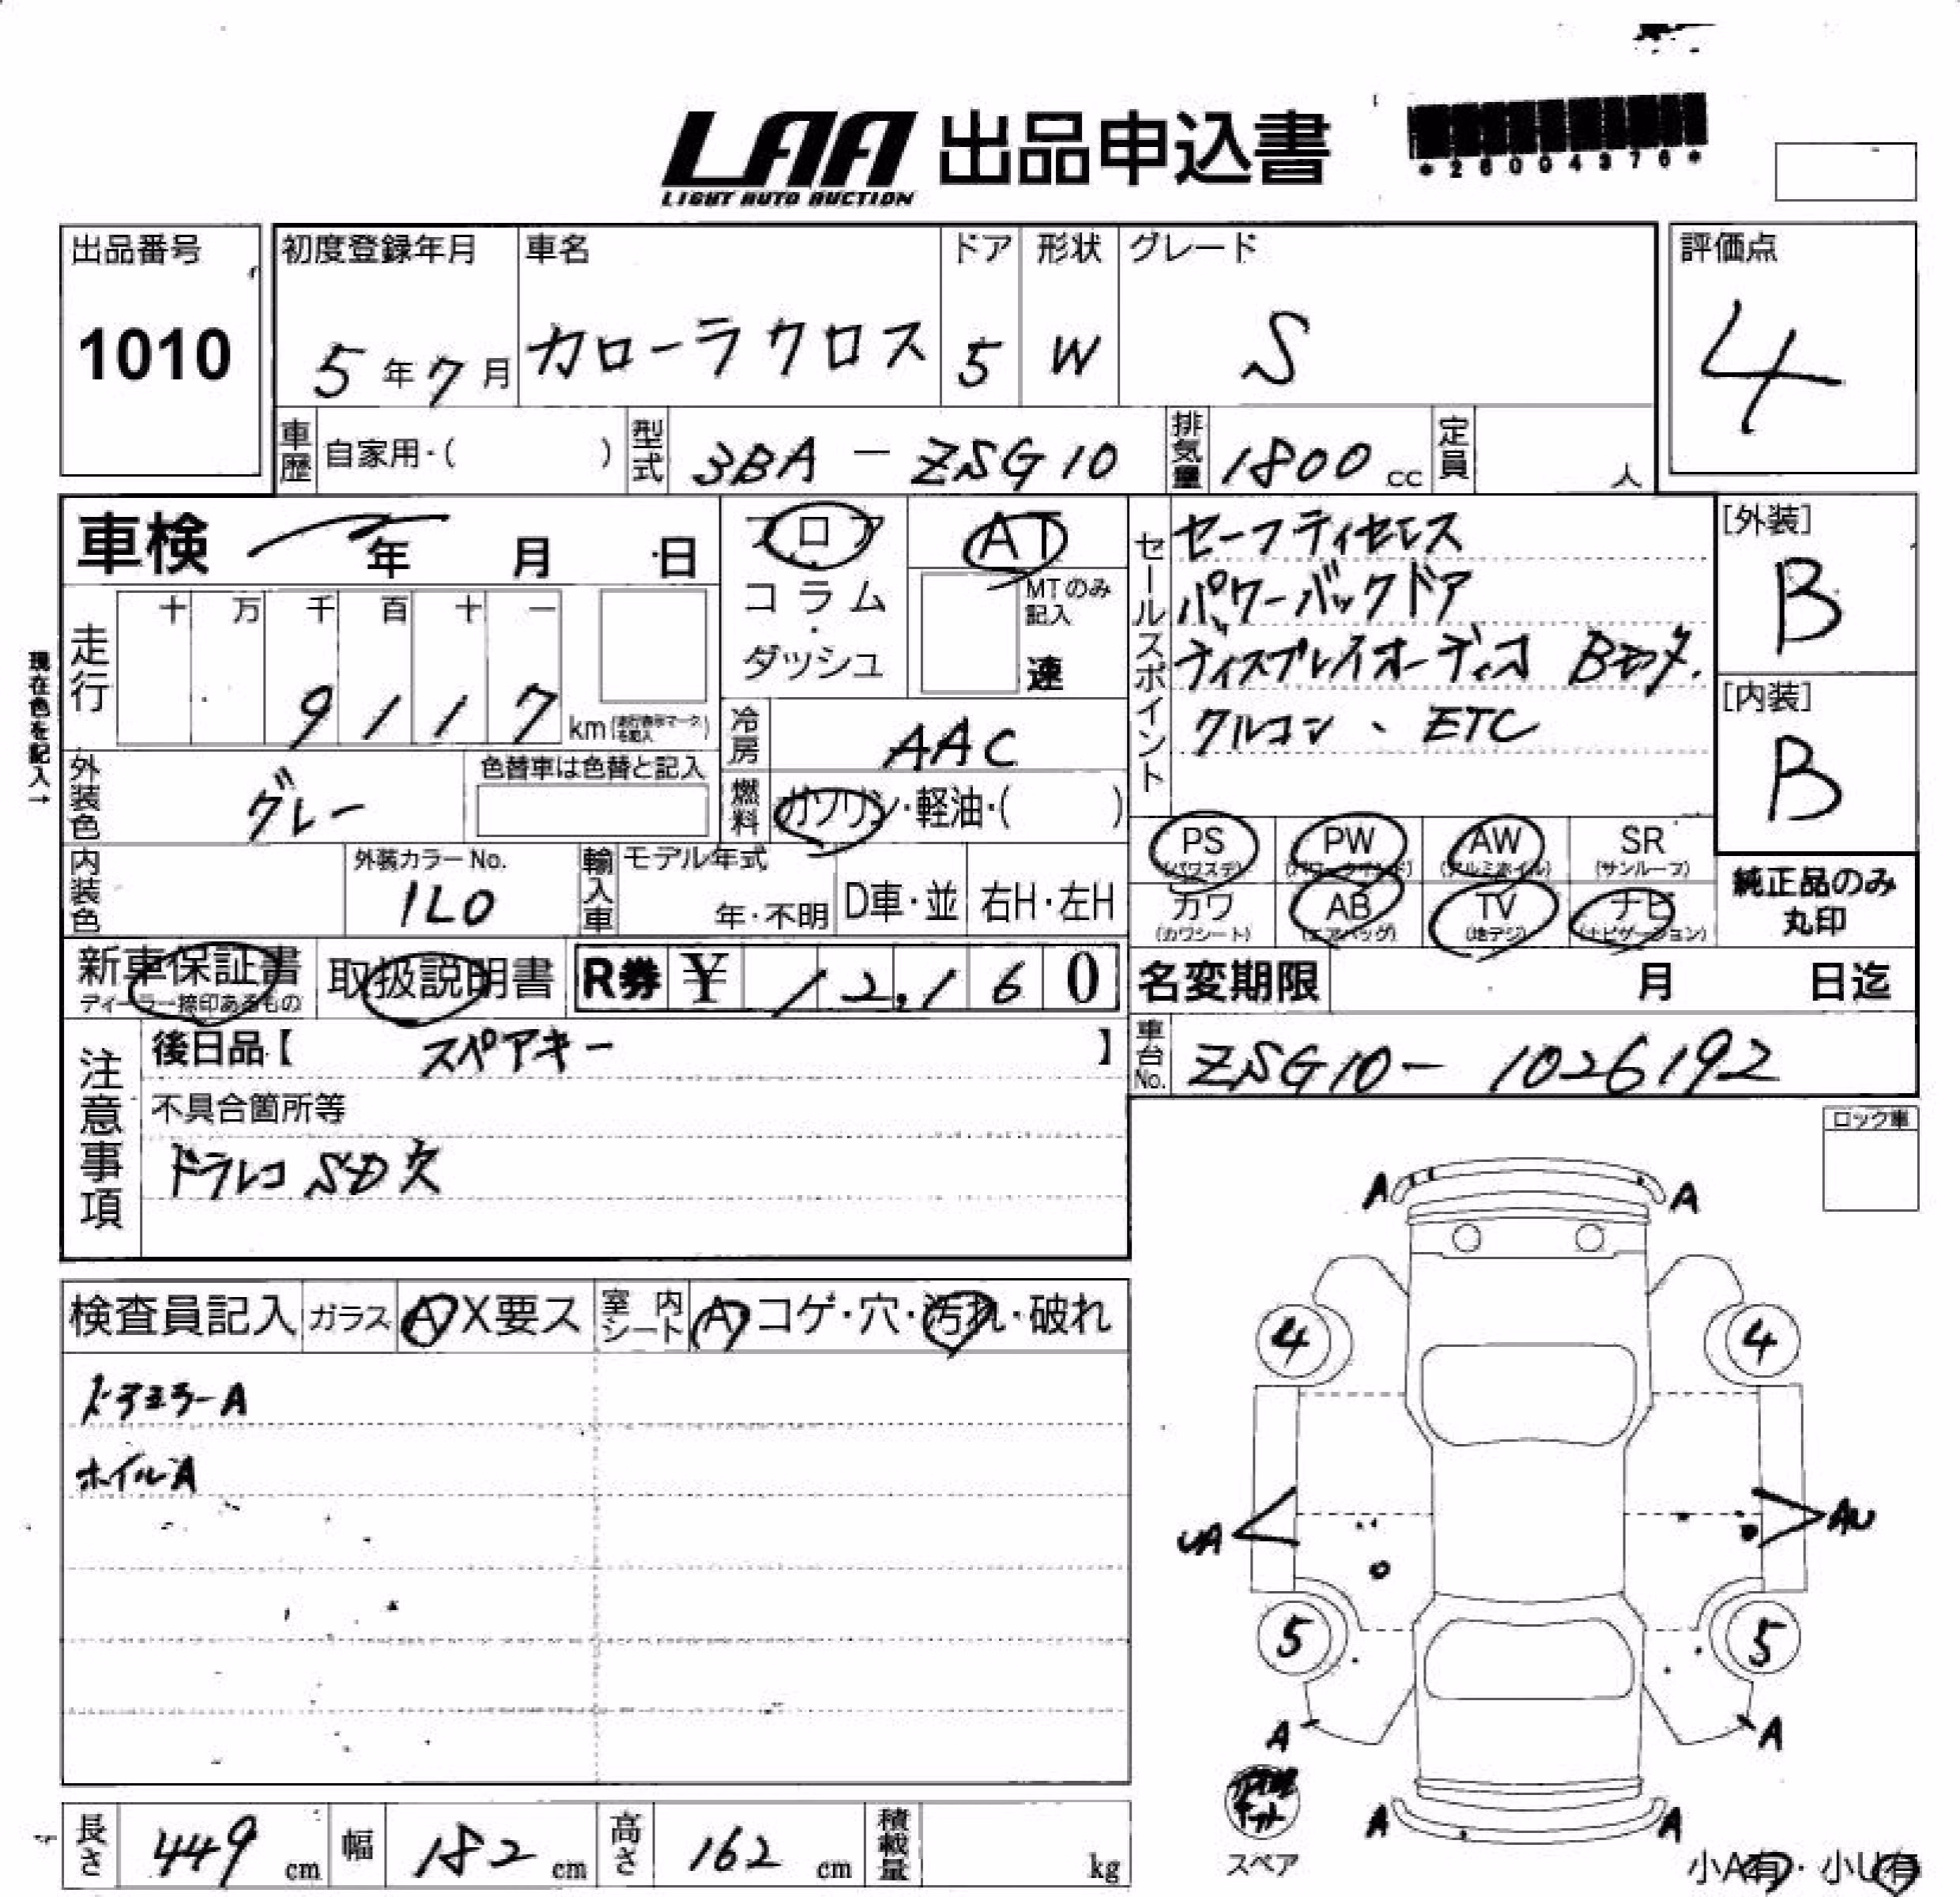 LAA 出品申込書
LIGHT AUTO AUCTION
*26004376*
出品番号
1010
初度登録年月
5年7月
車名
カローラクロス
ドア
5
形状
W
グレード
S
評価点
4
車歴 自家用・( )
型式 3BA - ZSG10
排気量 1800 cc
定員 人
車検 年 月 日
フロア
コラム
・
ダッシュ
AT
MTのみ記入
速
現在色を記入→
走行 十 万 千 百 十 一
9 1 1 7 km
冷房 AAC
燃料 ガソリン・軽油・( )
外装色 グレー
色替車は色替と記入
内装色
外装カラーNo.
1L0
輸入車 モデル年式
年・不明 D車・並 右H・左H
セールスポイント
セーフティセンス
パワーバックドア
ディスプレイオーディオ Bモタ.
クルコン、ETC
[外装]
B
[内装]
B
PS (パワステ) PW (パワーウインド) AW (アルミホイル) SR (サンルーフ)
カワ (カワシート) AB (エアバッグ) TV (地デジ) ナビ (ナビゲーション)
純正品のみ
丸印
新車保証書
ディーラー捺印あるもの
取扱説明書
R券 ¥ 12,160
名変期限 月 日迄
車台No. ZSG10- 1026192
注意事項
後日品【 スペアキー 】
不具合箇所等
ドラレコSD欠
ロック車
検査員記入 ガラス A X要ス 室内シート A コゲ・穴・汚れ・破れ
ドアミラーA
ホイルA
A A
4 4
UA AU
5 5
A A
A A
スペア
小A有・小U有
長さ 449 cm 幅 182 cm 高さ 162 cm 積載量 kg